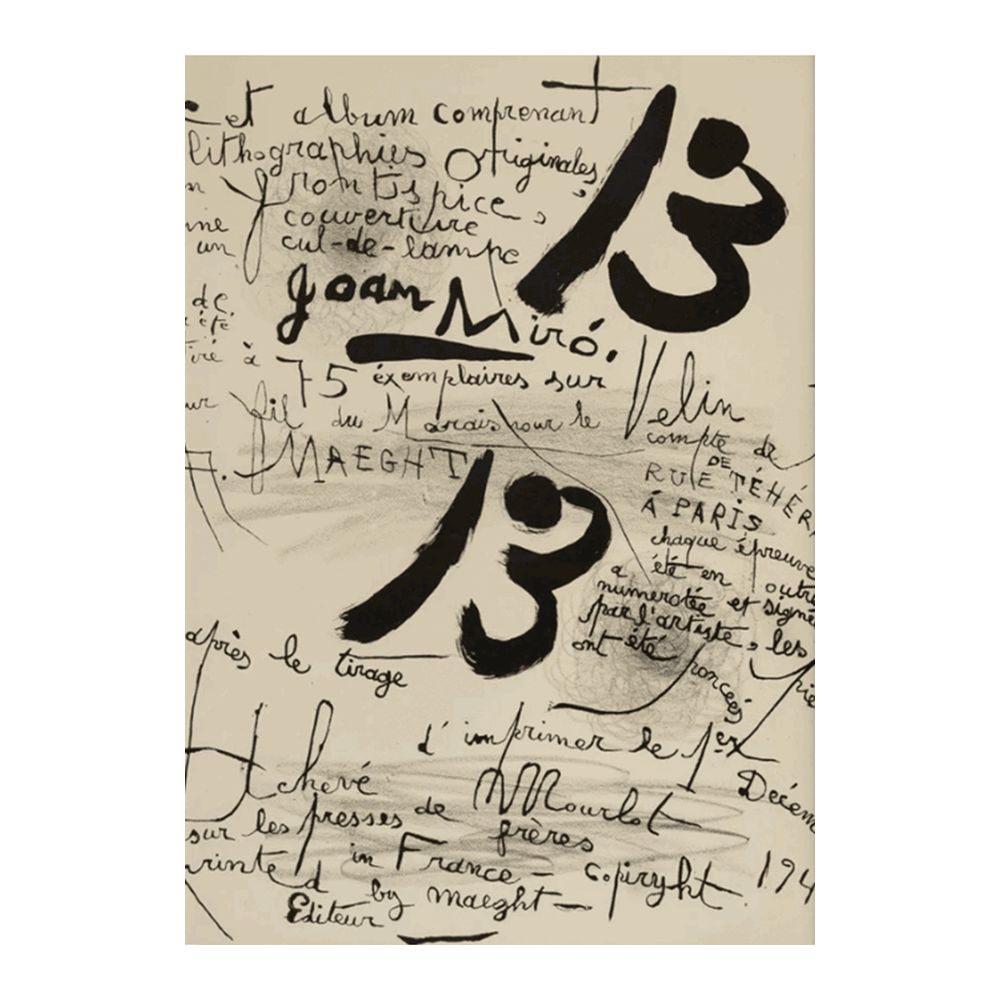 Cet album comprenant 13
lithographies originales,
un frontispice,
une couverture
un cul-de-lampe
de Joan Miró.
a été
tiré à 75 exemplaires sur Velin
pur fil du Marais pour le compte de
A. MAEGHT
RUE DE TÉHÉR
À PARIS
13
chaque épreuve
a été en outre
numerotée et signé
par l'artiste, les
après le tirage
ont été poncées
pie
Achevé d'imprimer le 1er
Décem
sur les presses de Mourlot
frères
printed in France - copiryht. 194
by maeght -
Editeur